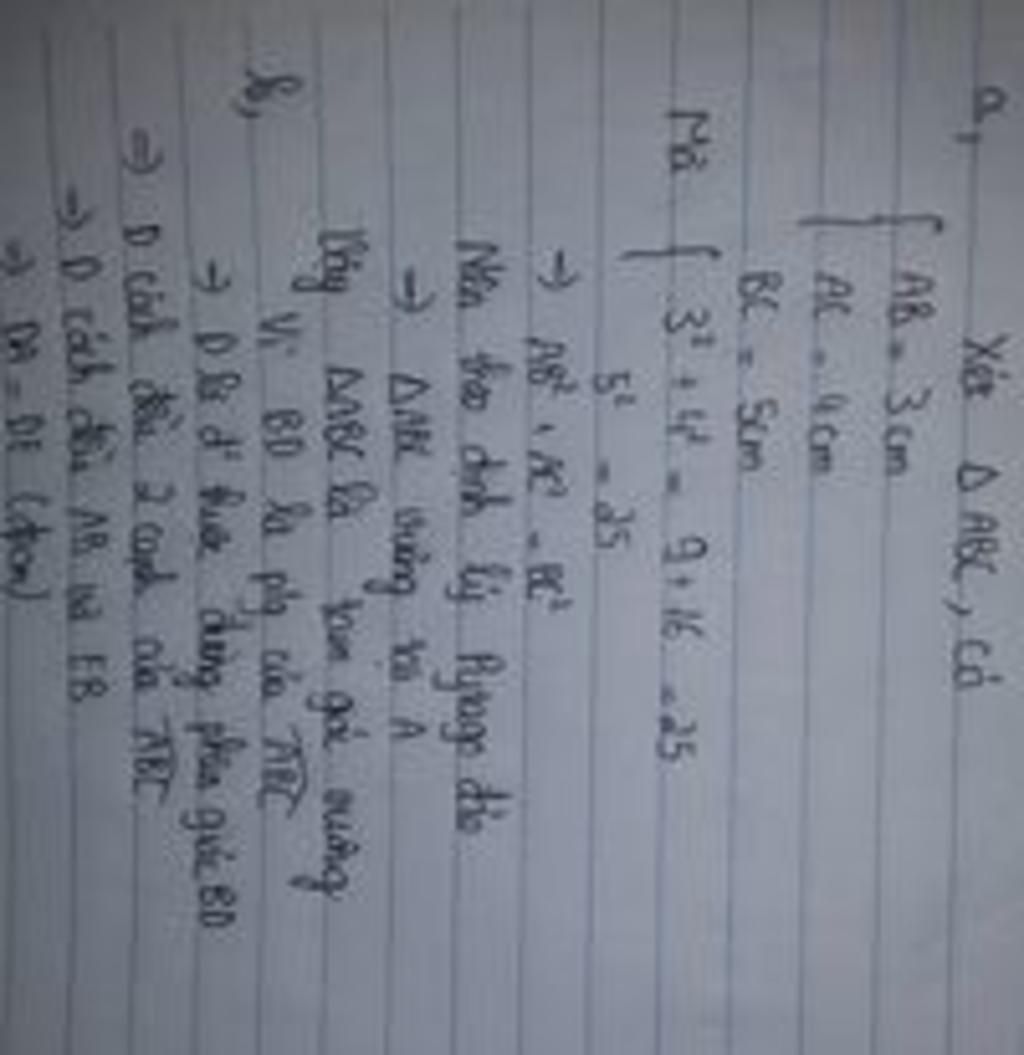 a, Xét Δ ABC, có
{ AB = 3 cm
AC = 4cm
BC = 5cm
Mà { 3² + 4² = 9 + 16 = 25
5² = 25
→ AB² + AC² = BC²
Nên theo định lý Pytago đảo
→ ΔABC vuông tại A
Vậy ΔABC là tam giác vuông
b, Vì BD là pg của ABC
→ D là đ' thuộc đường phân giác BD
=> D cách đều 2 cạnh của ABC
→ D cách đều AB và EB
=> DA = DE (đpcm)